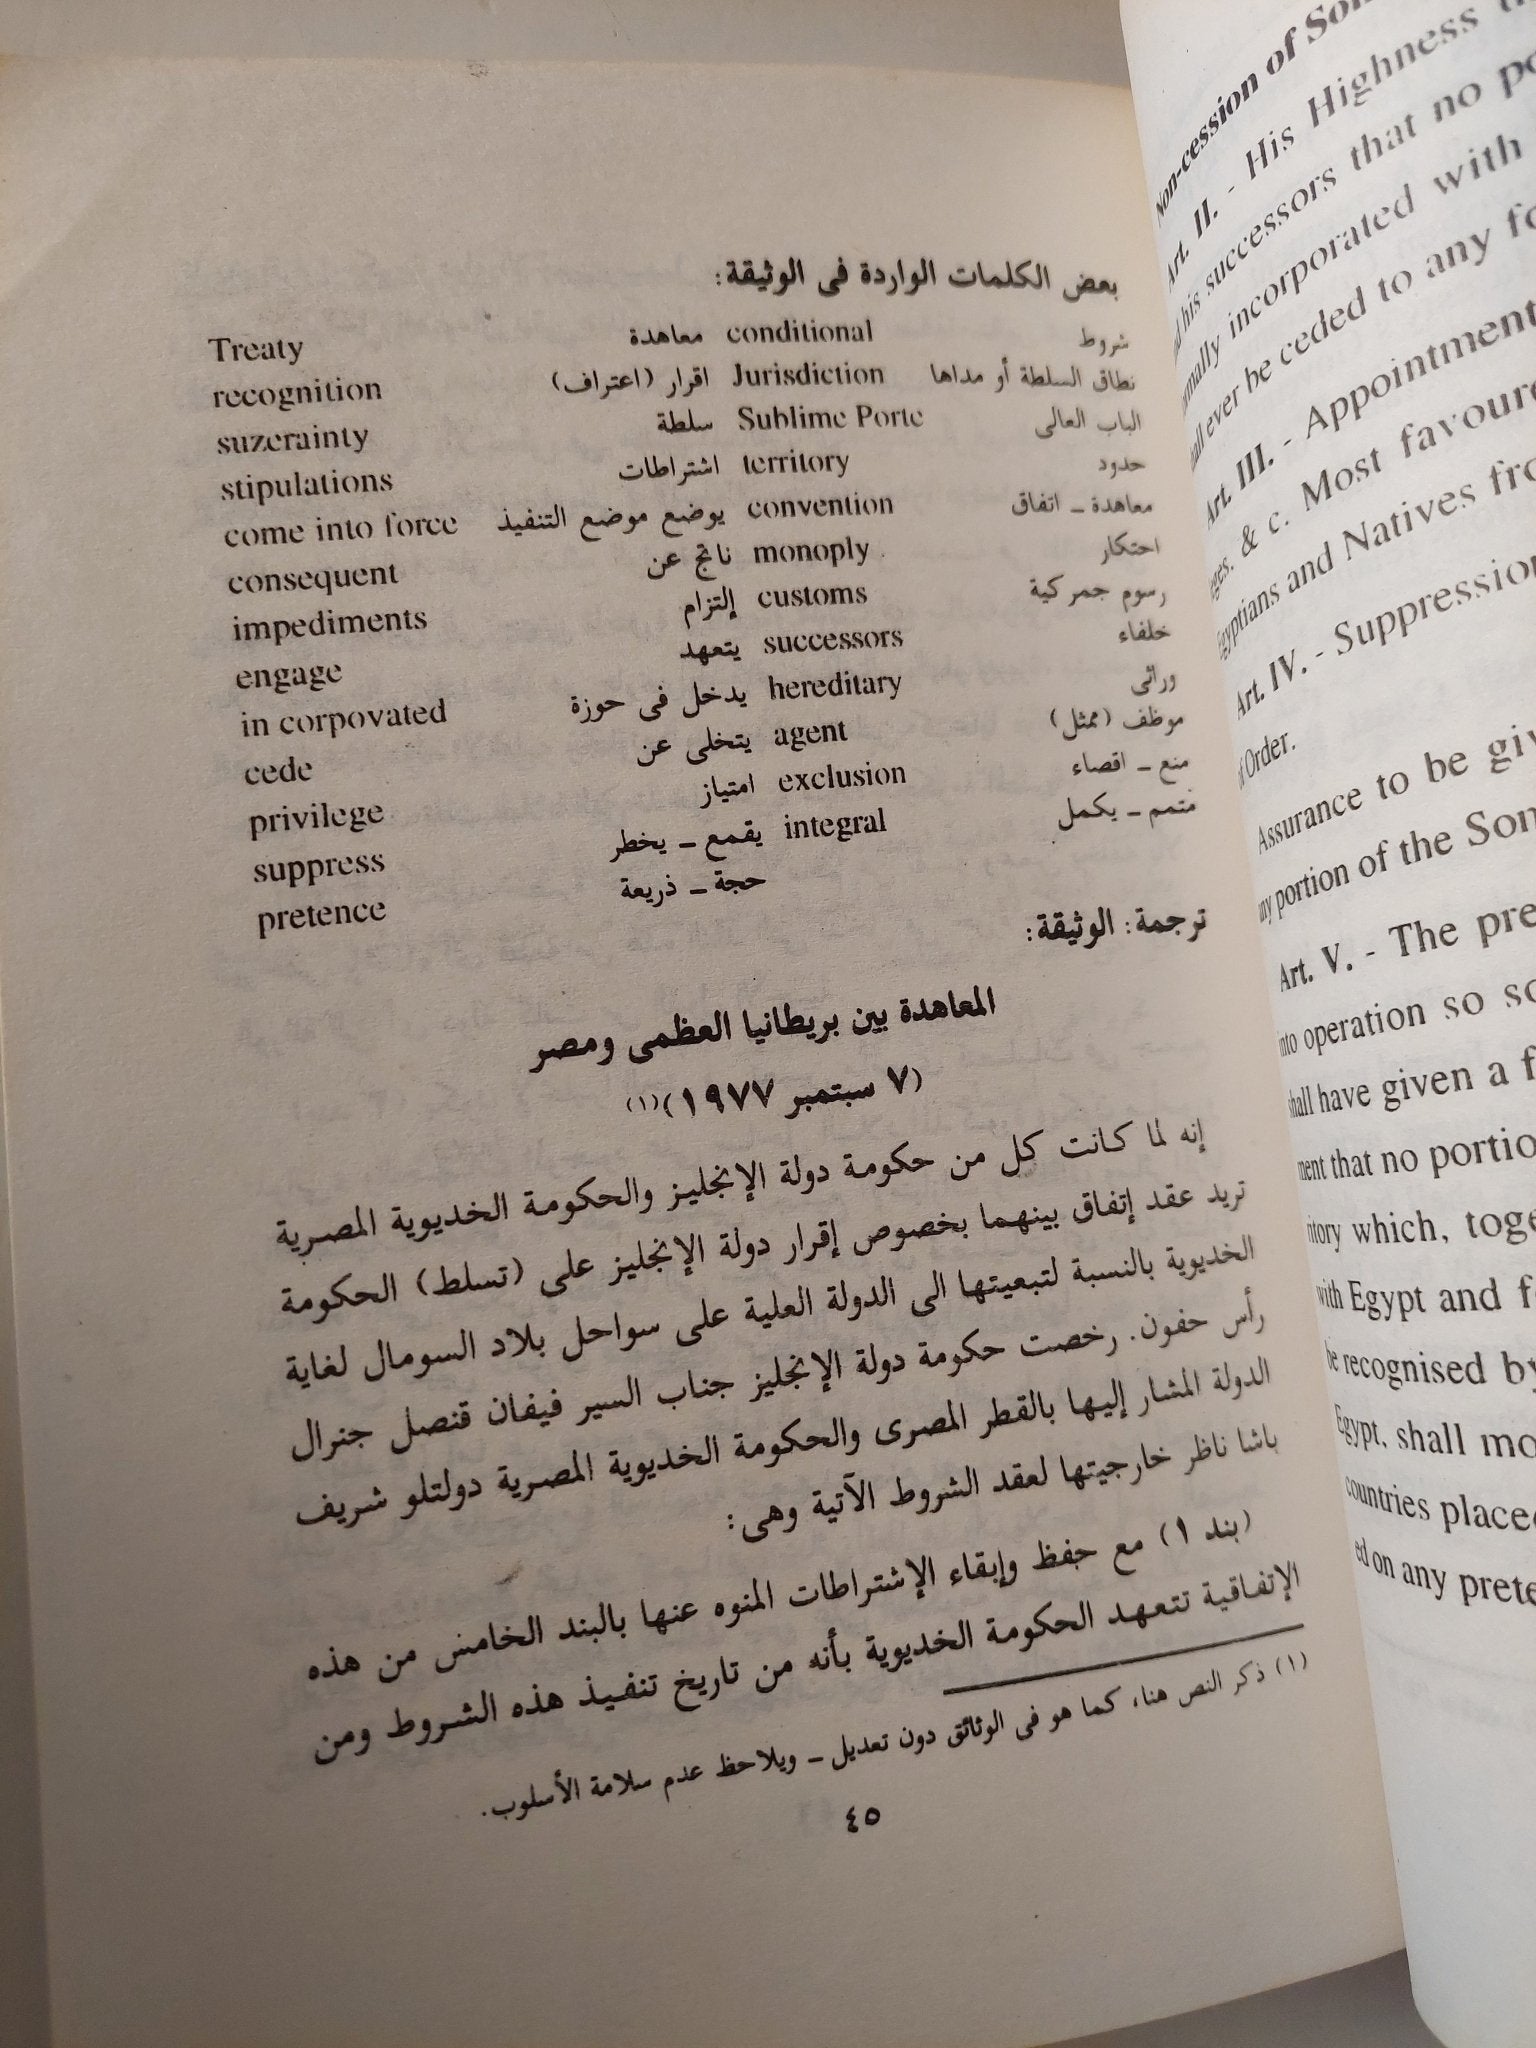 بعض الكلمات الواردة فى الوثيقة:
Treaty معاهدة conditional شروط
recognition اقرار (اعتراف) Jurisdiction نطاق السلطة أو مداها
suzerainty سلطة Sublime Porte الباب العالى
stipulations اشتراطات territory حدود
come into force يوضع موضع التنفيذ convention معاهدة ــ اتفاق
consequent ناتج عن monoply احتكار
impediments إلتزام customs رسوم جمركية
engage يتعهد successors خلفاء
in corpovated يدخل فى حوزة hereditary وراثى
cede يتخلى عن agent موظف (ممثل)
privilege امتياز exclusion منع ــ اقصاء
suppress يقمع ــ يخطر integral متمم ــ يكمل
pretence حجة ــ ذريعة
ترجمة: الوثيقة:
المعاهدة بين بريطانيا العظمى ومصر
(٧ سبتمبر ١٩٧٧)(١)
إنه لما كانت كل من حكومة دولة الإنجليز والحكومة الخديوية المصرية
تريد عقد إتفاق بينهما بخصوص إقرار دولة الإنجليز على (تسلط) الحكومة
الخديوية بالنسبة لتبعيتها الى الدولة العلية على سواحل بلاد السومال لغاية
رأس حفون. رخصت حكومة دولة الإنجليز جناب السير فيفان قنصل جنرال
الدولة المشار إليها بالقطر المصرى والحكومة الخديوية المصرية دولتلو شريف
باشا ناظر خارجيتها لعقد الشروط الآتية وهى:
(بند ١) مع حفظ وإبقاء الإشتراطات المنوه عنها بالبند الخامس من هذه
الإتفاقية تتعهد الحكومة الخديوية بأنه من تاريخ تنفيذ هذه الشروط ومن
(١) ذكر النص هنا، كما هو فى الوثائق دون تعديل ــ ويلاحظ عدم سلامة الأسلوب.
٤٥
Non-cession of
Art. II. - His Highness
his successors that no
incorporated with
ever be ceded to any
Art. III. - Appointment
& c. Most
Egyptians and Natives
Art. IV. - Suppression
of Order.
Assurance to be
any portion of the
Art. V. - The
into operation so
shall have given a
that no
which,
with Egypt and
be recognised by
Egypt, shall
countries
on any